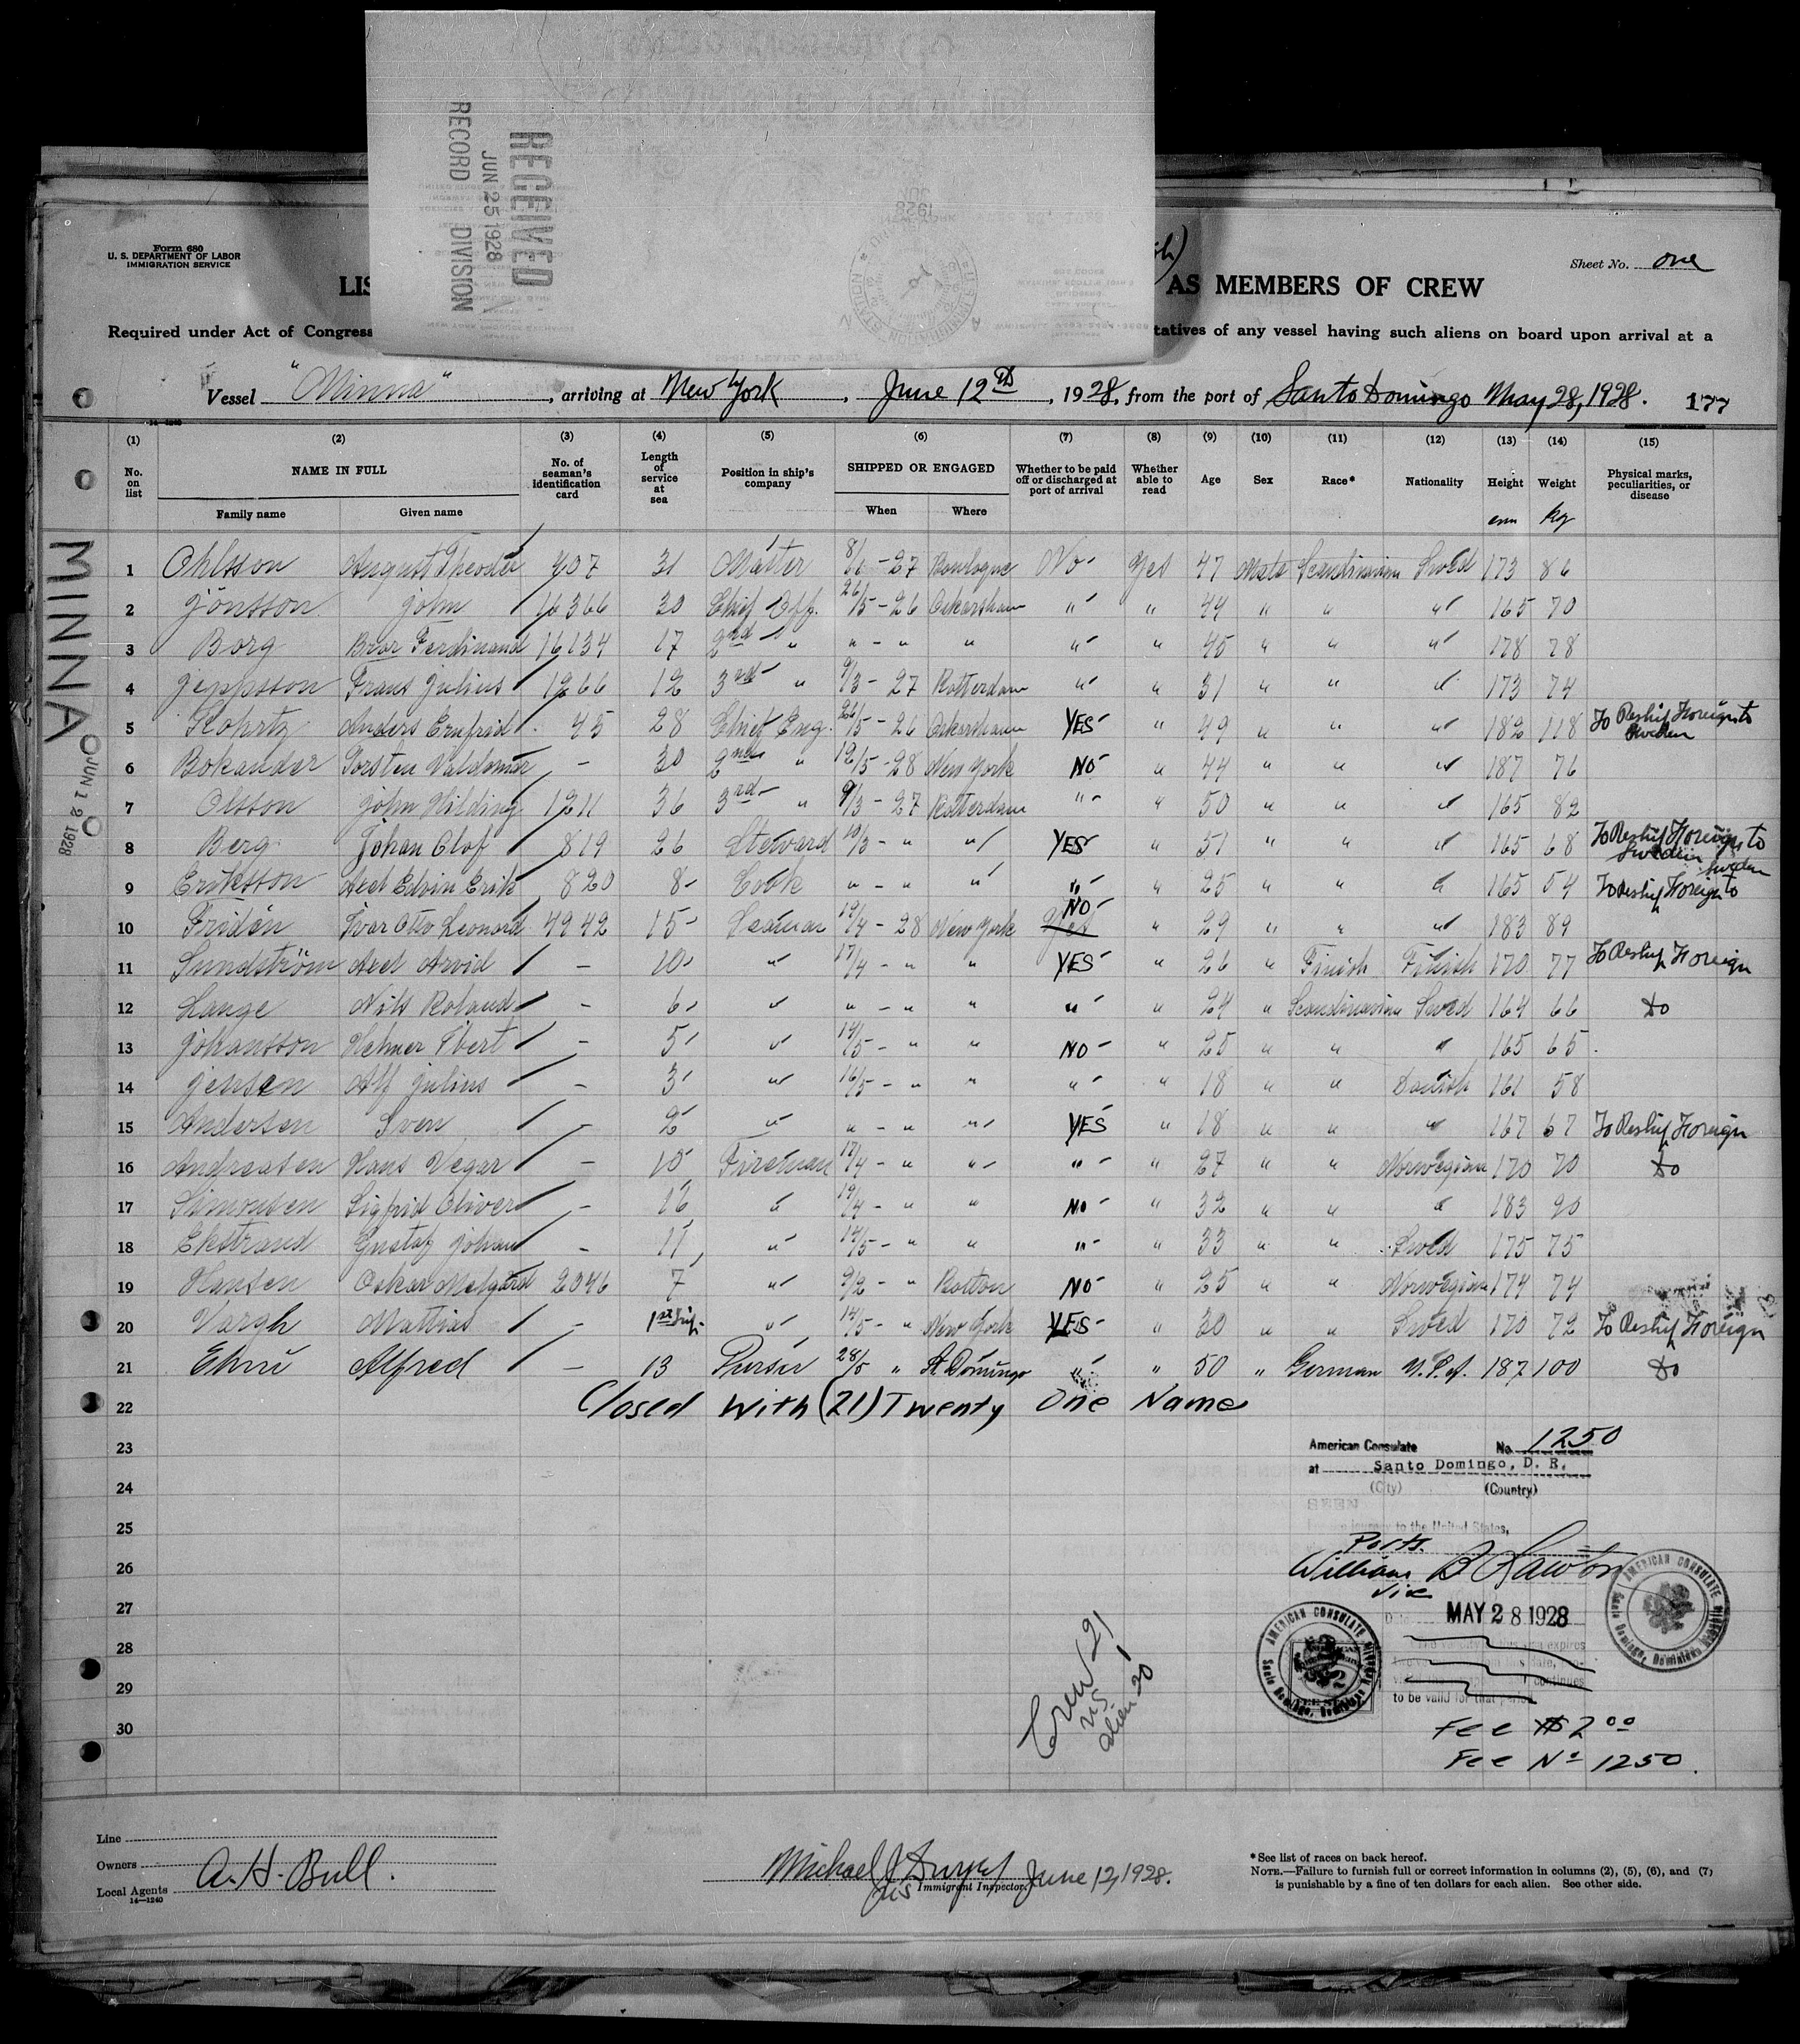 RECEIVED
JUN 25 1928
RECORD DIVISION
Form 680
U. S. DEPARTMENT OF LABOR
IMMIGRATION SERVICE
Sheet No. one
LIS AS MEMBERS OF CREW
Required under Act of Congress tatives of any vessel having such aliens on board upon arrival at a
Vessel "Minna", arriving at New York, June 12th, 1928, from the port of Santo Domingo May 28, 1928. 177
(1) (2) (3) (4) (5) (6) (7) (8) (9) (10) (11) (12) (13) (14) (15)
No. on list NAME IN FULL No. of seaman's identification card Length of service at sea Position in ship's company SHIPPED OR ENGAGED Whether to be paid off or discharged at port of arrival Whether able to read Age Sex Race* Nationality Height Weight Physical marks, peculiarities, or disease
Family name Given name When Where cm kg
MINNA
JUN 12 1928
1 Ohlsson August Theodor 407 31 Master 8/6-27 Boulogne No Yes 47 Male Scandinavian Swed 173 86
2 Jönsson John 16366 30 Chief Off. 26/5-26 Oskarshamn " " 44 " " " 165 70
3 Borg Bror Ferdinand 16134 17 2nd " " - " " " " 45 " " " 178 78
4 Jeppsson Frans Julius 1266 12 3rd " 9/3-27 Rotterdam " " 31 " " " 173 74
5 Anders Ernfrid 45 28 Chief Eng. 26/5-26 Oskarshamn YES " 49 " " " 182 118 To Reship Foreign to Sweden
6 Bokander Torsten Valdemar - 30 2nd " 12/5-28 New York NO " 44 " " " 187 76
7 Olsson John Hilding 1211 36 3rd " 9/3-27 Rotterdam " " 50 " " " 165 82
8 Berg Johan Olof 819 26 Steward 10/3- " " YES " 51 " " " 165 68 To Reship Foreign to Sweden
9 Eriksson Axel Edvin Erik 820 8 Cook " - " " " " 25 " " " 165 54 To Reship Foreign to Sweden
10 Fridén Ivar Otto Leonard 4942 15 Seaman 19/4-28 New York Yes NO " 29 " " " 183 89
11 Sundström Axel Arvid - 10 " 17/4- " " YES " 26 " Finish Finish 170 77 To Reship Foreign
12 Lange Nils Roland - 6 " " - " " " " 24 " Scandinavian Swed 164 66 do
13 Johansson Helmer - 5 " 14/5- " " NO " 25 " " " 165 65
14 Jensen Alf Julius - 3 " 16/5- " " " " 18 " " Danish 161 58
15 Andersen Sven - 2 " " - " " YES " 18 " " " 167 67 To Reship Foreign
16 Andreasen Hans Vegar - 10 Fireman 17/4- " " " " 27 " " Norwegian 170 70 do
17 Simonsen Sigfrid Oliver - 12 " 19/4- " " NO " 32 " " " 183 90
18 Ekstrand Gustaf Johan - 11 " 14/5- " " " " 33 " " Swed 175 75
19 Hansen Oskar 2046 7 " 9/2- " Boston NO " 25 " " Norwegian 174 74
20 Vargh Mattias - 1st trip " 14/5- " New York YES " 30 " " Swed 170 72 To Reship Foreign
21 Alfred - 13 Purser 28/5 " St Domingo " " 50 " German U.S.A. 187 100 do
22 Closed With (21) Twenty One Names
23
24
25
26
27
28
29
30
American Consulate No. 1250
at Santo Domingo, D. R.
(City) (Country)
journey to the United States,
Ports.
William B Lawton
Vice
Date MAY 28 1928
AMERICAN CONSULATE
Santo Domingo, Dominican Republic
to be valid for that period
Fee $2.00
Fee No 1250.
Crew 21
US 1
alien 20
Line
Owners
Local Agents A. H. Bull.
14—1240
Immigrant Inspector June 12, 1928.
*See list of races on back hereof.
NOTE.—Failure to furnish full or correct information in columns (2), (5), (6), and (7)
is punishable by a fine of ten dollars for each alien. See other side.